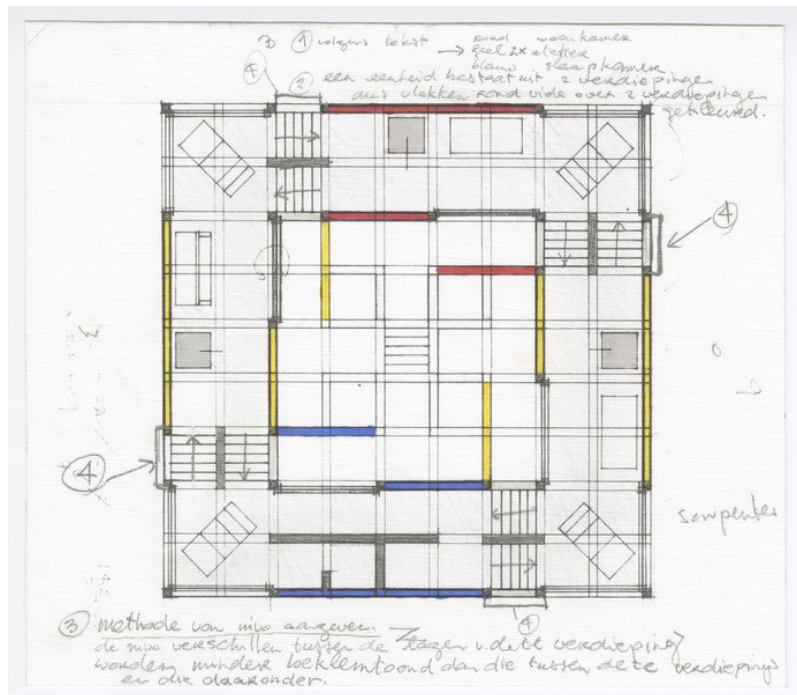 3 ① volgens tekst → rood woonkamer
geel 2x atelier
blauw slaapkamer
④
② een eenheid bestaat uit 2 verdiepingen
dus vlakken rond vide over 2 verdiepingen
gekleurd.
④
④
④
③ methode van nivo aangeven.
de nivo verschillen tussen de lagen v. deze verdieping
worden minder beklemtoond dan die tussen deze verdieping
en die daaronder.